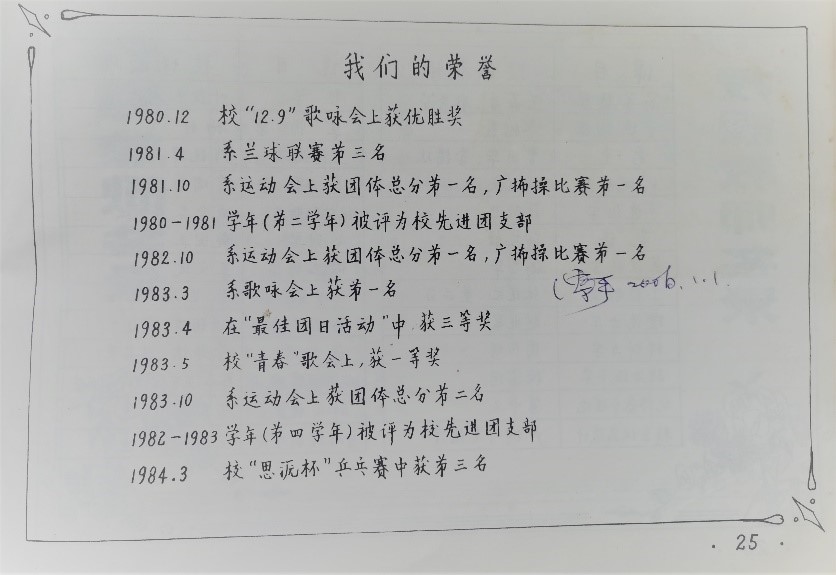 我们的荣誉
1980.12 校“12.9”歌咏会上获优胜奖
1981.4 系兰球联赛第三名
1981.10 系运动会上获团体总分第一名,广播操比赛第一名
1980-1981学年(第二学年)被评为校先进团支部
1982.10 系运动会上获团体总分第一名,广播操比赛第一名
1983.3 系歌咏会上获第一名
2006.1.1.
1983.4 在“最佳团日活动”中获三等奖
1983.5 校“青春”歌会上,获一等奖
1983.10 系运动会上获团体总分第二名
1982-1983学年(第四学年)被评为校先进团支部
1984.3 校“思源杯”乒乓赛中获第三名
·25·